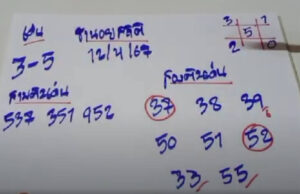 เด่น ชานอยสถิติ
12/4/67
3 1
5
2 0
3-5
สามตัวเด่น สองตัวเด่น
537 351 952
37 38 39
50 51 52
33 55